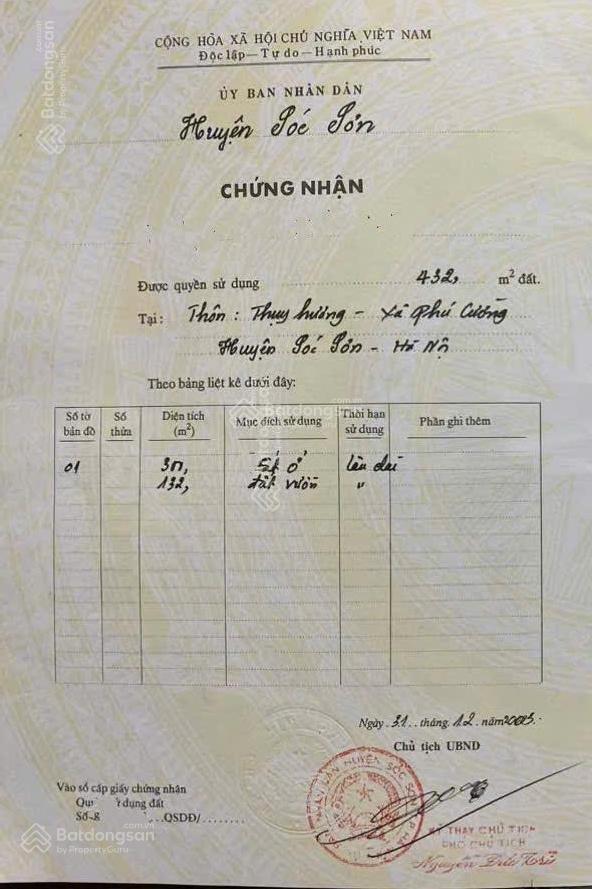 CỘNG HÒA XÃ HỘI CHỦ NGHĨA VIỆT NAM
Độc lập—Tự do—Hạnh phúc
ỦY BAN NHÂN DÂN
Huyện Sóc Sơn
CHỨNG NHẬN
Được quyền sử dụng 432, m² đất.
Tại: Thôn: Thụy hương - Xã Phú Cường
Huyện Sóc Sơn - Hà Nội
Theo bảng liệt kê dưới đây:
Số tờ bản đồ Số thửa Diện tích (m²) Mục đích sử dụng Thời hạn sử dụng Phần ghi thêm
01 ở lâu dài
132, đất vườn "
Ngày 31 tháng 12 năm
Chủ tịch UBND
Vào sổ cấp giấy chứng nhận
dụng đất
QSDĐ/
KT THAY CHỦ TỊCH
PHÓ CHỦ TỊCH
Nguyễn
Batdongsan
.com.vn
by PropertyGuru
Batdongsan
.com.vn
by PropertyGuru
Batdongsan
.com.vn
by PropertyGuru